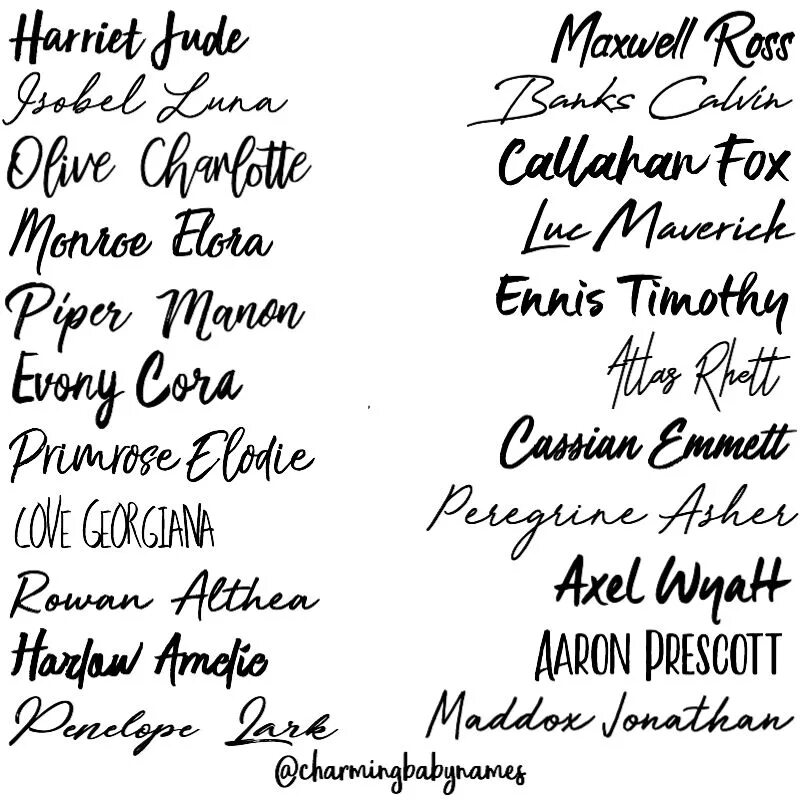 Harriet Jude
Isobel Luna
Olive Charlotte
Monroe Elora
Piper Manon
Evony Cora
Primrose Elodie
LOVE GEORGIANA
Rowan Althea
Harlow Amelie
Penelope Lark
Maxwell Ross
Banks Calvin
Callahan Fox
Luc Maverick
Ennis Timothy
Atlas Rhett
Cassian Emmett
Peregrine Asher
Axel Wyatt
AARON PRESCOTT
Maddox Jonathan
@charmingbabynames